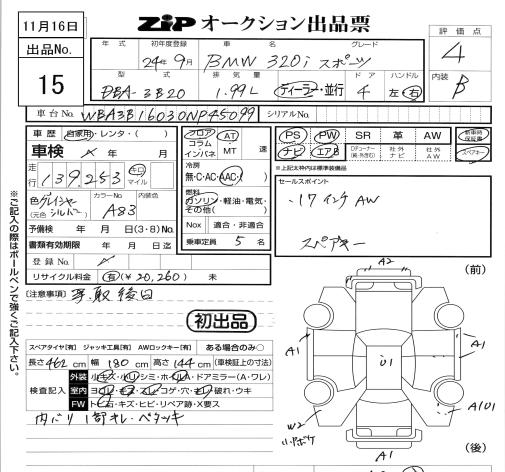 11月16日
ZiP オークション出品票
評価点
4
内装
B
出品No.
15
年式 初年度登録 車名 グレード
24年9月 BMW 320i スポーツ
型式 排気量 ドア ハンドル
DBA-3B20 1.99L ディーラー・並行 4 左 右
車台No. WBA3B16030NP45099 シリアルNo.
車歴 自家用・レンタ・( )
車検 年 月 日
走行 139,253 キロ マイル
色 グレイシャーシルバー (元色) カラーNo A83 内装色
予備検 年 月(3・8)No.
書類有効期限 年 月 日迄
登録No.
リサイクル料金 有(¥20,260) 未
フロア コラム インパネ AT MT 速
冷房 無・C・AC・AAC
燃料 ガソリン・軽油・電気・その他( )
Nox 適合・非適合
乗車定員 5名
PS PW SR 革 AW 新車時保証書
ナビ エアB 社外ナビ 社外AW スペアキー
※上記太枠内は標準装備品
セールスポイント
・17インチAW
スペアキー
[注意事項] 後日
初出品
スペアタイヤ[有] ジャッキ工具[有] AWロックキー[有] ある場合のみ○
長さ462cm 幅180cm 高さ144cm (車検証上の寸法)
検査記入
外装 小キズ・小凹・シミ・ホイルA・ドアミラー(A・ワレ)
室内 ヨゴレ・キズ・スレ・コゲ・穴・キレ・破れ・ウキ
FW ト石・キズ・ヒビ・リペア跡・X要ス
内バリ1部オレ・ベタツキ
※ご記入の際はボールペンで強くご記入下さい。
(前)
A2
A1
A1
U1
A1
A1
W2
小ボケ
A1
(後)